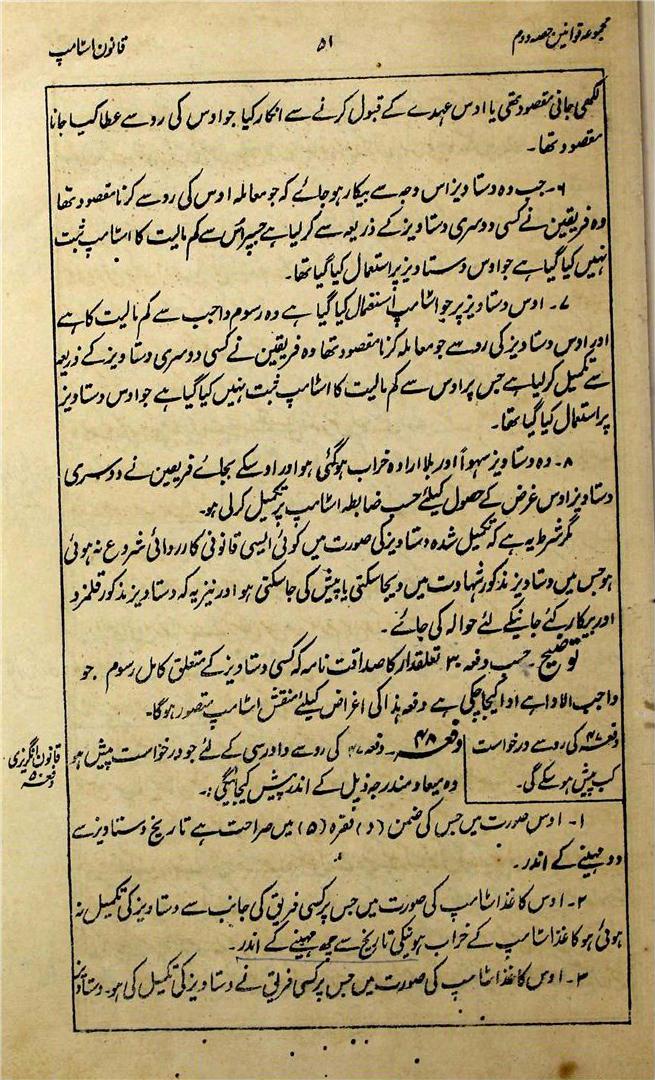 مجموعہ قوانین حصہ دوم
۵۱
قانون اسٹامپ
لکھی جانی مقصود تھی یا اوس عہدے کے قبول کرنے سے انکار کیا جو اوس کی رو سے عطا کیا جانا
مقصود تھا۔
۶۔ جب وہ دستاویز اس وجہ سے بیکار ہو جائے کہ جو معاملہ اوس کی رو سے کرنا مقصود تھا
وہ فریقین نے کسی دوسری دستاویز کے ذریعہ سے کر لیا ہے جسپر اُس سے کم مالیت کا اسٹامپ ثبت
نہیں کیا گیا ہے جو اوس دستاویز پر استعمال کیا گیا تھا۔
۷۔ اوس دستاویز پر جو اسٹامپ استعمال کیا گیا ہے وہ رسوم واجب سے کم مالیت کا ہے
اور اوس دستاویز کی رو سے جو معاملہ کرنا مقصود تھا وہ فریقین نے کسی دوسری دستاویز کے ذریعہ
سے تکمیل کر لیا ہے جس پر اوس سے کم مالیت کا اسٹامپ ثبت نہیں کیا گیا ہے جو اوس دستاویز
پر استعمال کیا گیا تھا۔
۸۔ وہ دستاویز سہواً اور بلا ارادہ خراب ہوگئی ہو اور اوسکے بجائے فریقین نے دوسری
دستاویز اوس غرض کے حصول کیلئے حسب ضابطہ اسٹامپ پر تکمیل کر لی ہو۔
مگر شرط یہ ہے کہ تکمیل شدہ دستاویز کی صورت میں کوئی ایسی قانونی کارروائی شروع نہ ہوئی
ہو جس میں دستاویز مذکور شہادت میں دیجا سکتی یا پیش کی جا سکتی ہو اور نیز یہ کہ دستاویز مذکور قلمزد
اور بیکار کئے جانیکے لئے حوالہ کی جائے۔
توضیح۔ حسب دفعہ ۳۰ تعلقدار کا صداقت نامہ کہ کسی دستاویز کے متعلق کامل رسوم جو
واجب الادا ہے ادا کیجا چکی ہے دفعہ ہذا کی اغراض کیلئے منقش اسٹامپ متصور ہوگا۔
دفعہ ۴۷ کی رو سے درخواست
کب پیش ہو سکے گی۔
دفعہ ۴۸۔ دفعہ ۴۷ کی رو سے دادرسی کے لئے جو درخواست پیش ہو
وہ میعاد مندرجہ ذیل کے اندر پیش کیجائیگی:۔
قانون انگریزی
دفعہ ۵۰
۱۔ اوس صورت میں جس کی ضمن (د) فقرہ (۵) میں صراحت ہے تاریخ دستاویز سے
دو مہینے کے اندر۔
۲۔ اوس کاغذ اسٹامپ کی صورت میں جس پر کسی فریق کی جانب سے دستاویز کی تکمیل نہ
ہوئی ہو کاغذ اسٹامپ کے خراب ہونیکی تاریخ سے چھ مہینے کے اندر۔
۳۔ اوس کاغذ اسٹامپ کی صورت میں جس پر کسی فریق نے دستاویز کی تکمیل کی ہو۔ دستاویز